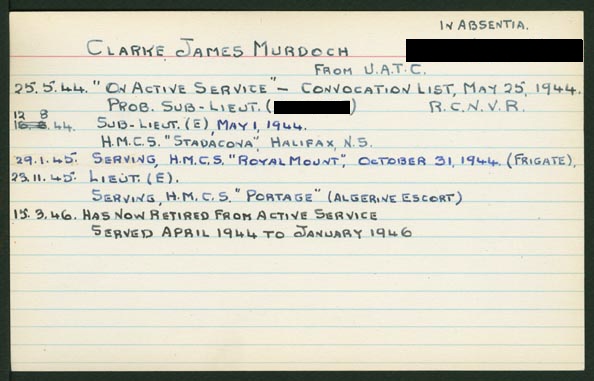 IN ABSENTIA.
CLARKE, JAMES MURDOCH
FROM U.A.T.C.
25.5.44. "ON ACTIVE SERVICE" - CONVOCATION LIST, MAY 25, 1944.
PROB. SUB-LIEUT. ( ) R.C.N.V.R.
12 8
16.8.44. SUB-LIEUT. (E), MAY 1, 1944.
H.M.C.S. "STADACONA", HALIFAX, N.S.
29.1.45. SERVING, H.M.C.S. "ROYALMOUNT", OCTOBER 31, 1944. (FRIGATE),
23.11.45. LIEUT. (E).
SERVING, H.M.C.S. "PORTAGE" (ALGERINE ESCORT)
15.3.46. HAS NOW RETIRED FROM ACTIVE SERVICE
SERVED APRIL 1944 TO JANUARY 1946